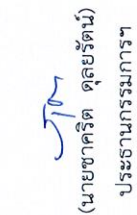 (นายชาคริต ดุลยรัตน์)
ประธานกรรมการฯ